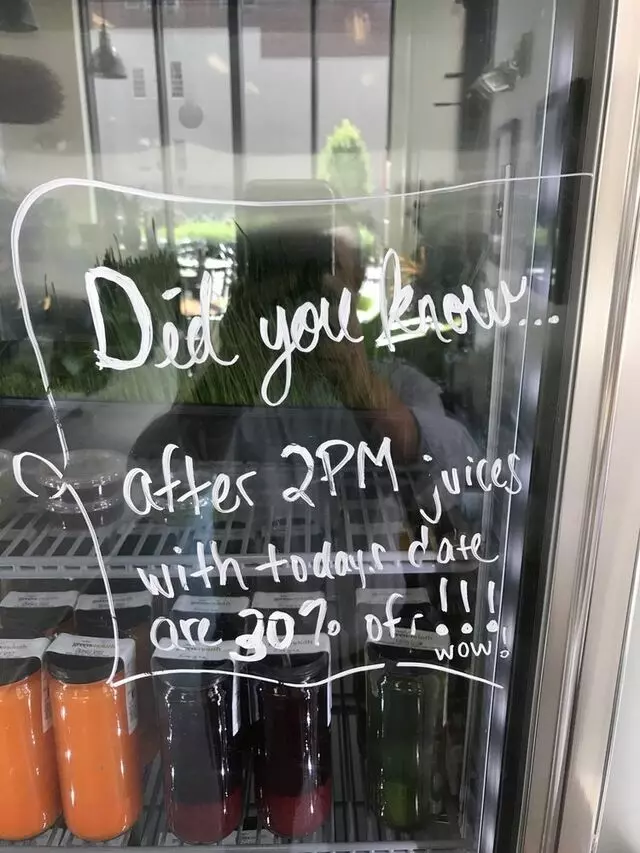 Did you know...
after 2PM juices
with todays date
are 30% off!!!
wow!